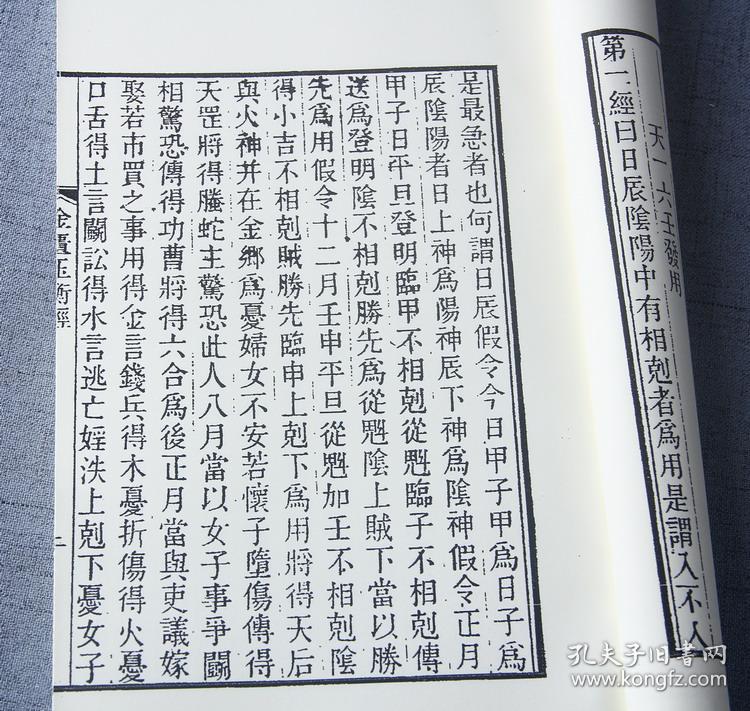 天一六壬發用
第一經曰日辰陰陽中有相剋者爲用是謂入不入
是最急者也何謂日辰假令今日甲子甲爲日子爲
辰陰陽者日上神爲陽神辰下神爲陰神假令正月
甲子日平旦登明臨甲不相剋從魁臨子不相剋傳
送爲登明陰不相剋勝先爲從魁陰上賊下當以勝
先爲用假令十二月壬申平旦從魁加壬不相剋陰
得小吉不相剋賊勝先臨申上剋下爲用將得天后
與火神并在金鄉爲憂婦女不安若懷子墮傷傳得
天罡將得螣蛇主驚恐此人八月當以女子事爭鬭
相驚恐傳得功曹將得六合爲後正月當與吏議嫁
娶若市買之事用得金言錢兵得木憂折傷得火憂
口舌得土言鬭訟得水言逃亡婬泆上剋下憂女子
金匱玉衡經
孔夫子旧書网
www.kongfz.com